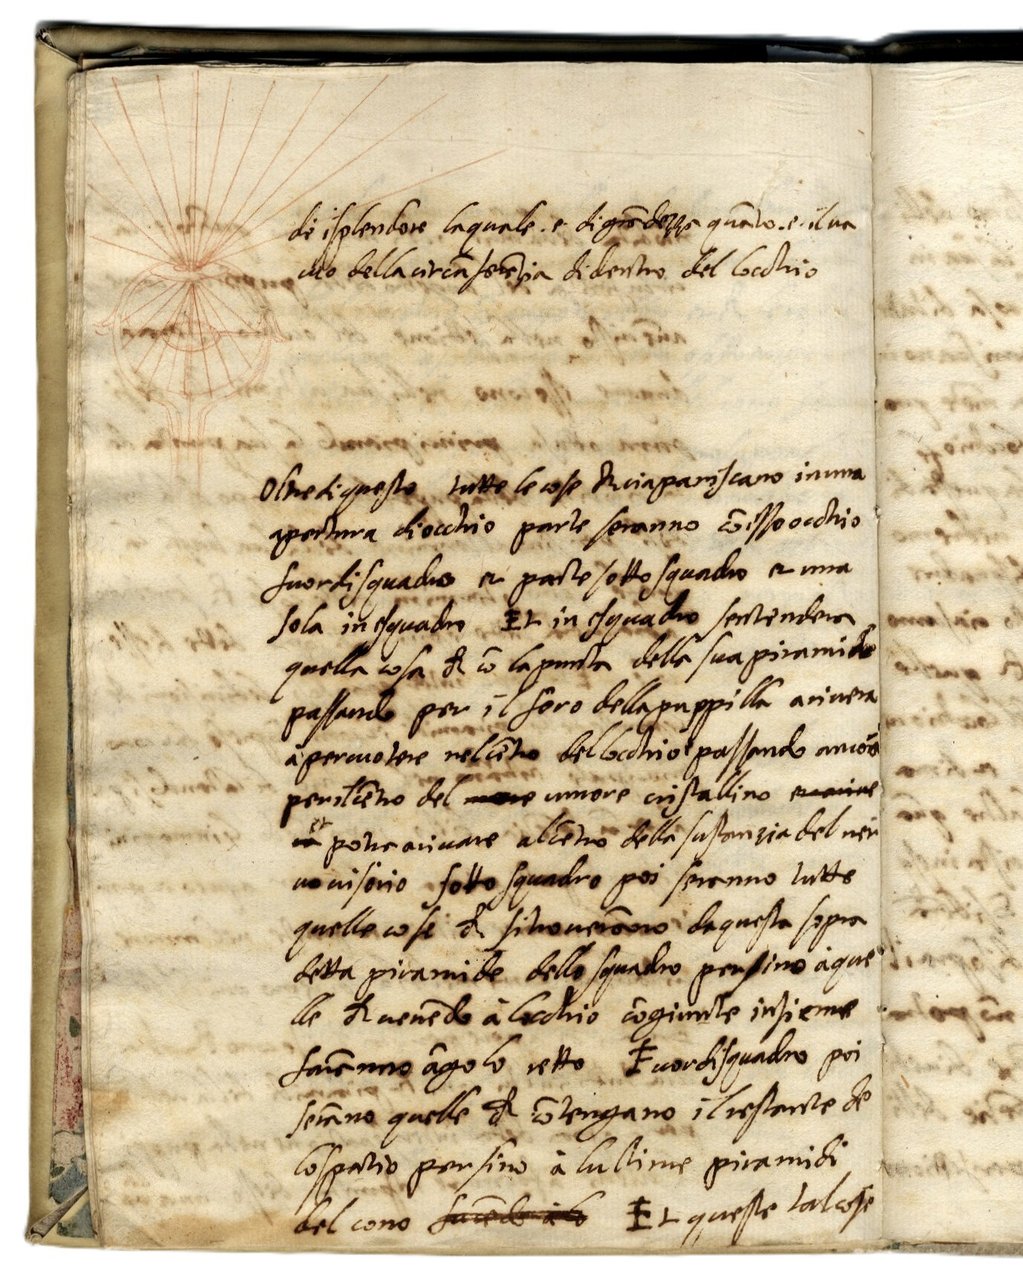 di splendore laquale . e digrādezza quāto . e . il va
cuo della circūferēzia di dentro del locchio
Oltre di questo tutte le cose che ci apariscano in una
apertura di occhio parte seranno cō isso occhio
fuor di squadro et parte sotto squadro et una
sola in esquadro Et in esquadro sentendera
quella cosa ch cō la punta della sua piramide
passando per il foro della puppilla arivera
à percuotere nel cētro dellocchio passando ancōra
per il cētro del umore cristallino
et potra arivare al cētro della sustanzia del ner
vo visorio sotto squadro poi seranno tutte
quelle cose ch si troverāno da questa sopra
detta piramide dello squadro per sino à que
lle ch venēdo à locchio cōgiunte insieme
farēnno āgolo retto Fuor di squadro poi
serāno quelle ch cōtengano il restante de
lo spatio per sino à lultime piramidi
del cono facēdo à lo Et queste tal cose